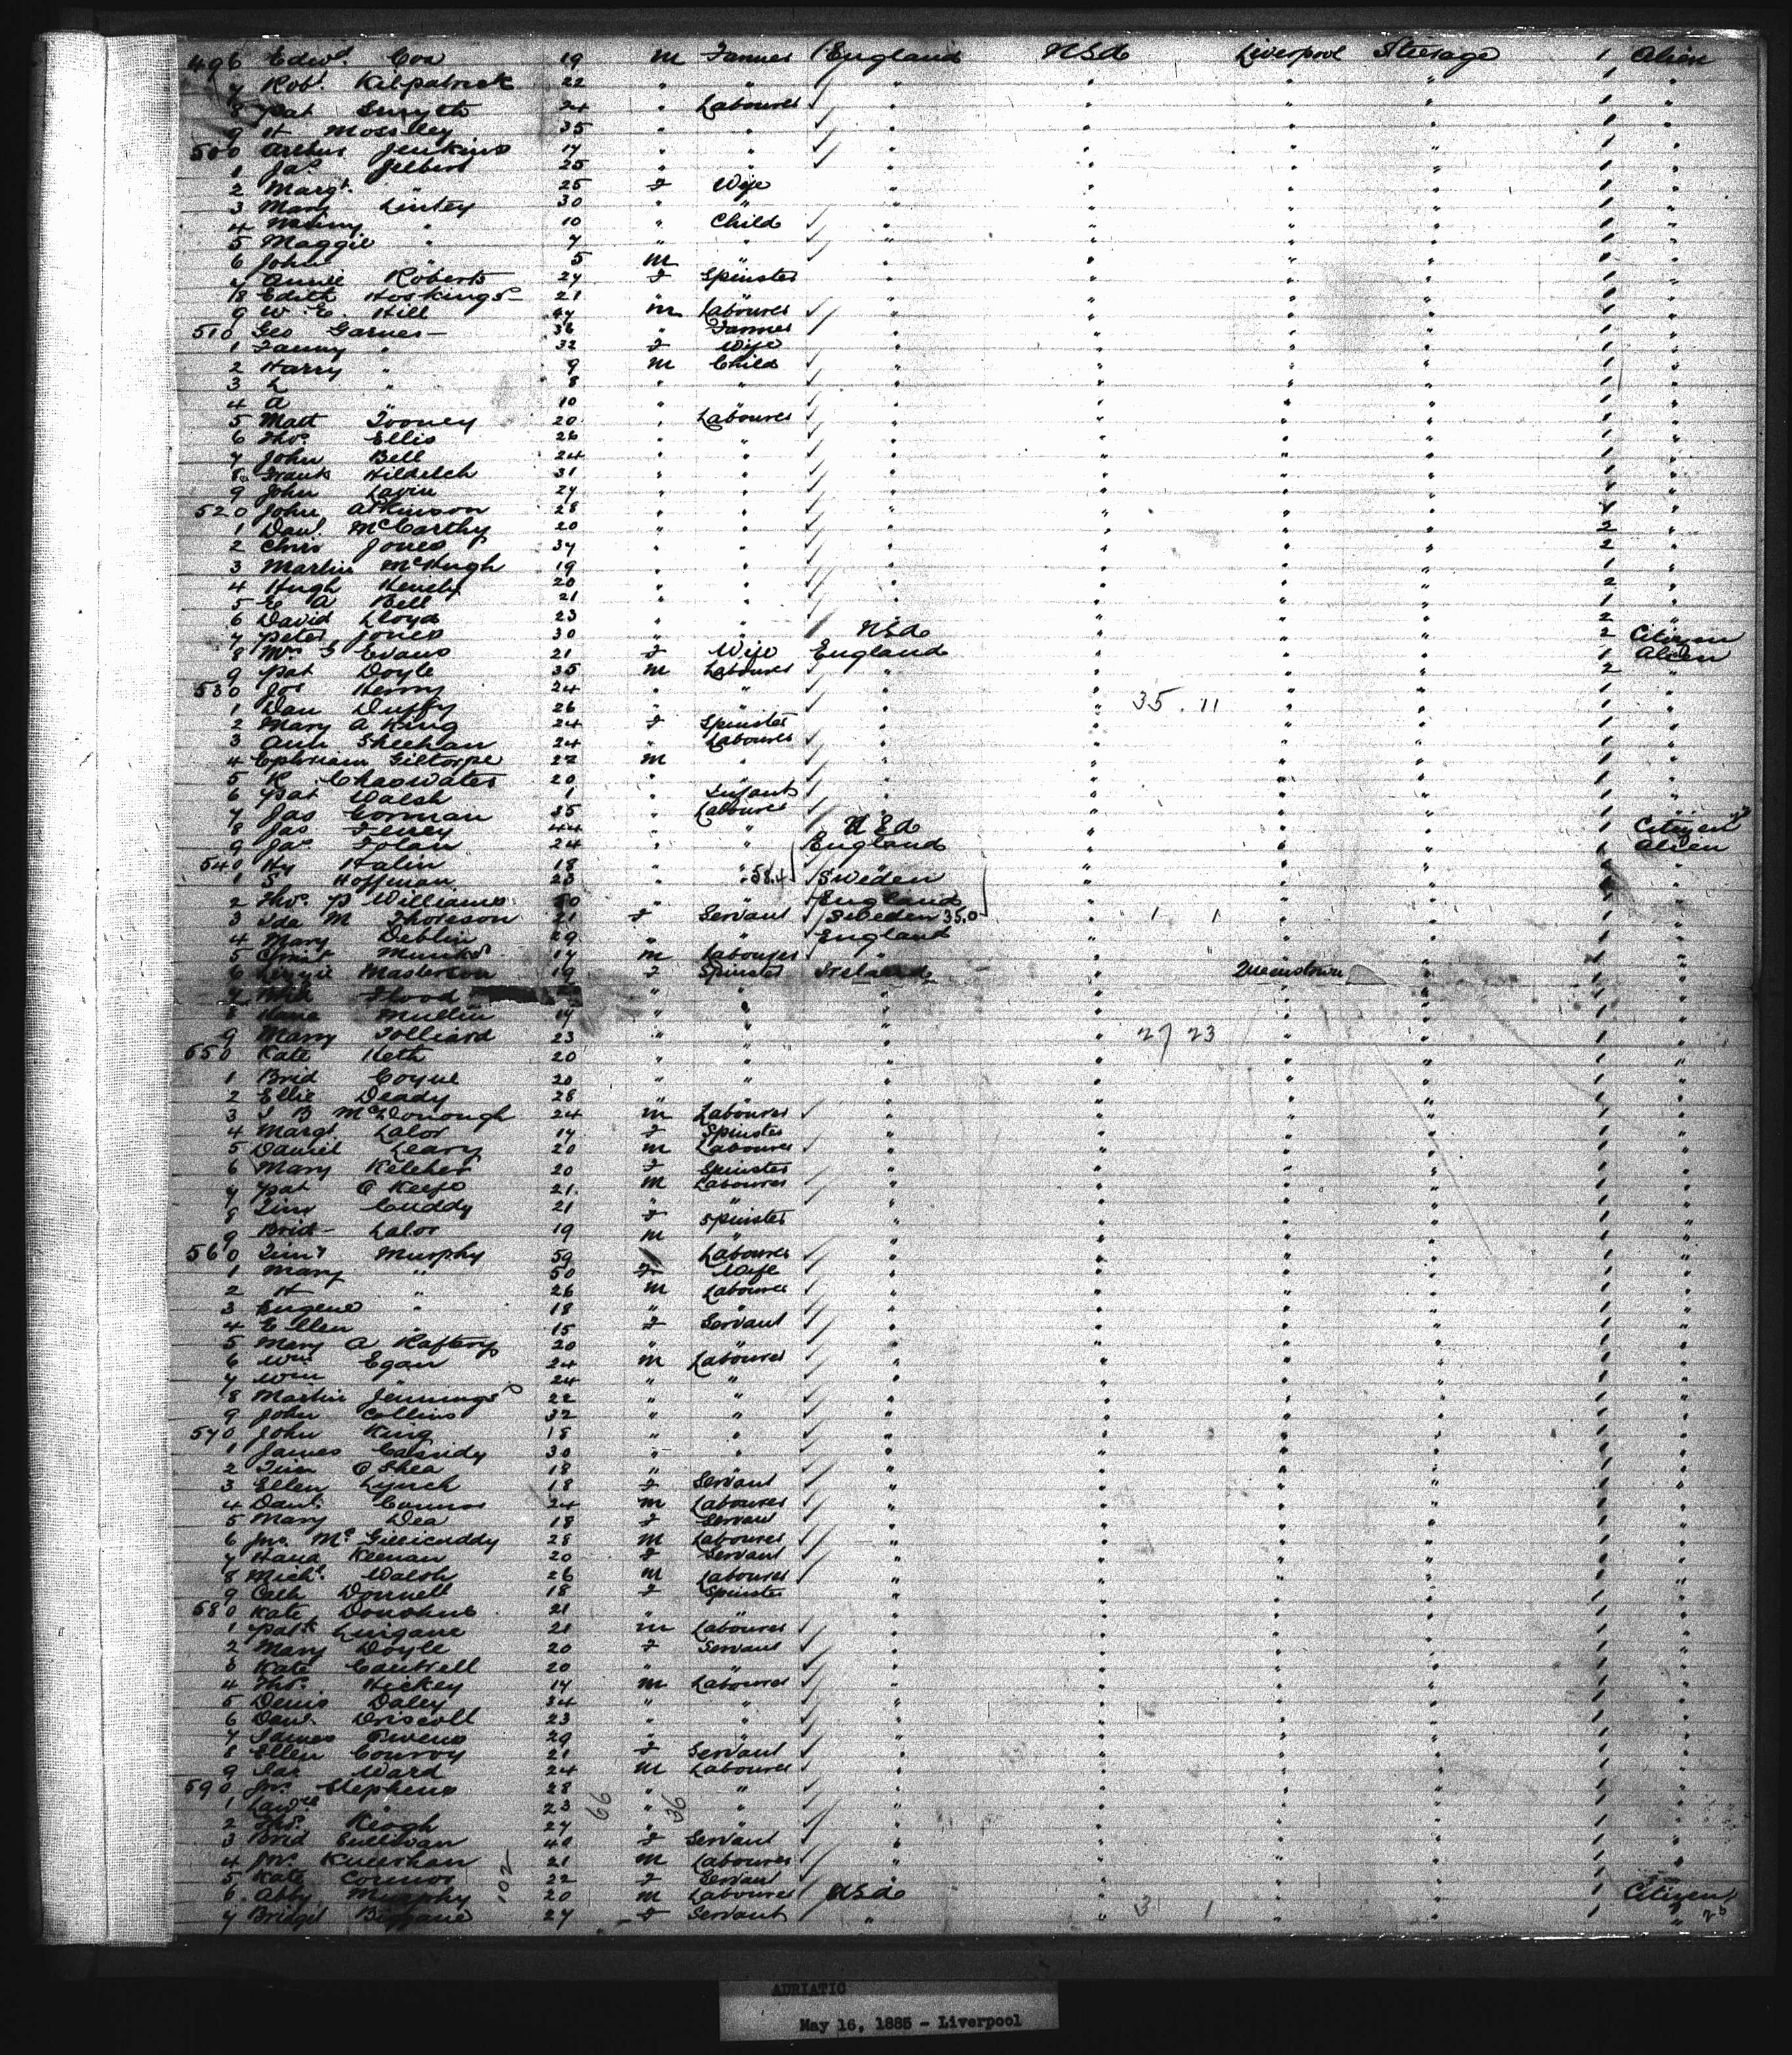 496 Edwd Cox 19 m Farmer England USA Liverpool Steerage 1 Alien
7 Robt Kilpatrick 22 " " " " " " 1 "
8 Pat Smyth 24 " Labourer " " " " 1 "
9 H Mossley 35 " " " " " " 1 "
500 Arthur Jenkins 17 " " " " " " 1 "
1 Jas Jilbert 25 " " " " " " 1 "
2 Margt " 25 F Wife " " " " 1 "
3 Mary Linley 30 " " " " " " 1 "
4 " 10 " Child " " " " 1 "
5 Maggie " 7 " " " " " " 1 "
6 John " 5 m " " " " " 1 "
7 Annie Roberts 27 F Spinster " " " " 1 "
8 Edith Hoskings 21 " " " " " " 1 "
9 W. E. Hill 47 m Labourer " " " " 1 "
510 Geo Garner 36 " Farmer " " " " 1 "
1 Fanny " 32 F Wife " " " " 1 "
2 Harry " 9 m Child " " " " 1 "
3 L " 8 " " " " " " 1 "
4 A " 10 " " " " " " 1 "
5 Matt Tooney 20 " Labourer " " " " 1 "
6 Thos Ellis 26 " " " " " " 1 "
7 John Bell 24 " " " " " " 1 "
8 Frank Hilditch 31 " " " " " " 1 "
9 John Lavin 27 " " " " " " 1 "
520 John Atkinson 28 " " " " " " 1 "
1 Danl McCarthy 20 " " " " " " 2 "
2 Chris Jones 37 " " " " " " 2 "
3 Martin McHugh 19 " " " " " " 1 "
4 Hugh 20 " " " " " " 2 "
5 E A Bell 21 " " " " " " 1 "
6 David Lloyd 23 " " " " " " 2 "
7 Peter Jones 30 " " USA " " " 2 Citizen
8 Mrs Evans 21 F Wife England " " " 1 Alien
9 Pat Doyle 35 m Labourer " " " " 2 "
530 Jos Henry 24 " " " " " " 1 "
1 Dan Duffy 26 " " " " 35. 11 " " 1 "
2 Mary A King 24 F Spinster " " " " 1 "
3 Anth Sheehan 24 " Labourer " " " " 1 "
4 Ephriam Giltorpe 22 m " " " " " 1 "
5 R 20 " " " " " " 1 "
6 Pat Walsh 1 " Infant " " " " 1 "
7 Jas Gorman 35 " Labourer " " " " 1 "
8 Jas Feney 44 " " USA " " " 1 Citizen
9 Jas Folan 24 " " England " " " 1 Alien
540 Hy Halin 18 " " " " " " "
1 S Hoffman 23 " " 58.4 Sweden " " " "
2 Thos P Williams " " England " " " 1 "
3 Ida M Thoreson 21 F Servant Sweden 35.0 " 1 1 " " 1 "
4 Mary Deblin 29 " " England " " " 1 "
5 17 m Labourer " " " " 1 "
6 Lizzie Masterson 19 F Spinster Ireland " Queenstown " 1 "
7 Flood " " " " " " 1 "
8 Mullin 17 " " " " " " 1 "
9 Mary Tolliard 23 " " " " 27 23 " " 1 "
550 Kate Keth 20 " " " " " " 1 "
1 Brid Coyne 20 " " " " " " 1 "
2 Ellie Deady 28 " " " " " " 1 "
3 J B McDonough 24 m Labourer " " " " 1 "
4 Margt Lalor 17 F Spinster " " " " 1 "
5 Daniel Leary 20 m Labourer " " " " 1 "
6 Mary Keleher 20 F Spinster " " " " 1 "
7 Pat O Keefe 21 m Labourer " " " " 1 "
8 Tim Cuddy 21 " " " " " " 1 "
9 Brid Lalor 19 F Spinster " " " " 1 "
560 Timy Murphy 59 m Labourer " " " " 1 "
1 Mary " 50 F Wife " " " " 1 "
2 H " 26 m Labourer " " " " 1 "
3 Eugene " 18 " " " " " " 1 "
4 Ellen " 15 F Servant " " " " 1 "
5 Mary A Raftery 20 " " " " " " 1 "
6 Wm Egan 24 m Labourer " " " " 1 "
7 Wm " 24 " " " " " " 1 "
8 Martin Jennings 22 " " " " " " 1 "
9 John Collins 32 " " " " " " 1 "
570 John King 18 " " " " " " 1 "
1 James Cassidy 30 " " " " " " 1 "
2 Tim O Shea 18 " " " " " " 1 "
3 Ellen Lynch 18 F Servant " " " " 1 "
4 Danl Connor 24 m Labourer " " " " 1 "
5 Mary Dea 18 F Servant " " " " 1 "
6 Jno Mc Gillicuddy 28 m Labourer " " " " 1 "
7 Hana Keenan 20 F Servant " " " " 1 "
8 Michl Walsh 26 m Labourer " " " " 1 "
9 Cath Donnell 18 F Spinster " " " " 1 "
580 Kate Donohue 21 " " " " " " 1 "
1 Patk Lingane 21 m Labourer " " " " 1 "
2 Mary Doyle 20 F Servant " " " " 1 "
3 Kate Cantwell 20 " " " " " " 1 "
4 Thos Hickey 17 m Labourer " " " " 1 "
5 Denis Daley 34 " " " " " " 1 "
6 Danl Driscoll 23 " " " " " " 1 "
7 James Owens 29 " " " " " " 1 "
8 Ellen Conroy 21 F Servant " " " " 1 "
9 Jas Ward 24 m Labourer " " " " 1 "
590 Jno Stephens 28 " " " " " " 1 "
1 Lawce 23 66 " 36 " " " " " 1 "
2 Thos Keogh 27 " " " " " " 1 "
3 Brid Sullivan 40 F Servant " " " " 1 "
4 Jno 21 m Labourer " " " " 1 "
5 Kate Connor 102 22 F Servant " " " " 1 "
6 Abby Murphy 20 m Labourer USA " 3 1 " " 1 Citizen
7 Bridget 27 F Servant " " " " 1 "
ADRIATIC
May 16, 1885 - Liverpool